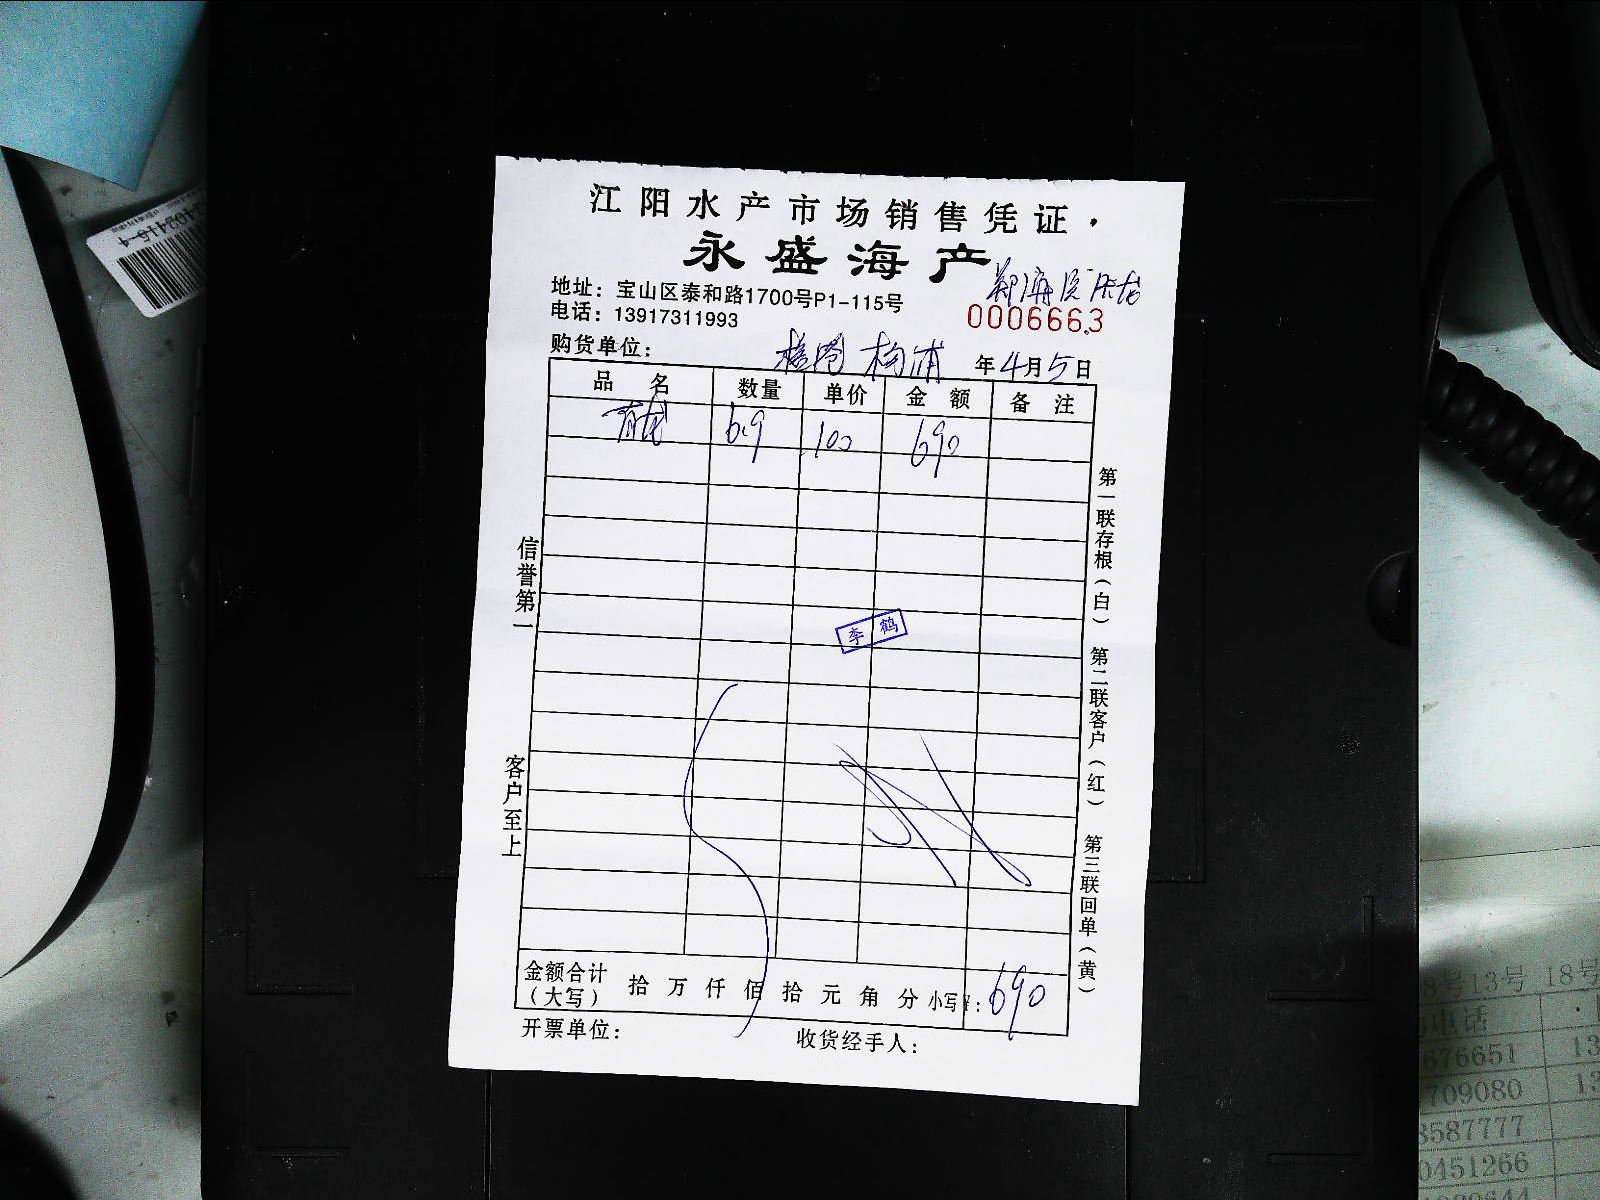 江阳水产市场销售凭证
永盛海产
地址：宝山区泰和路1700号P1-115号
电话：13917311993
0006663
购货单位：
年4月5日
品名 数量 单价 金额 备注
青龙 6.9 100 690
信誉第一
客户至上
李鹤
第一联存根（白） 第二联客户（红） 第三联回单（黄）
金额合计（大写） 拾万仟佰拾元角分 小写¥：690
开票单位： 收货经手人：
8号13号 18号
电话
676651 13
709080 13
8587777
0451266